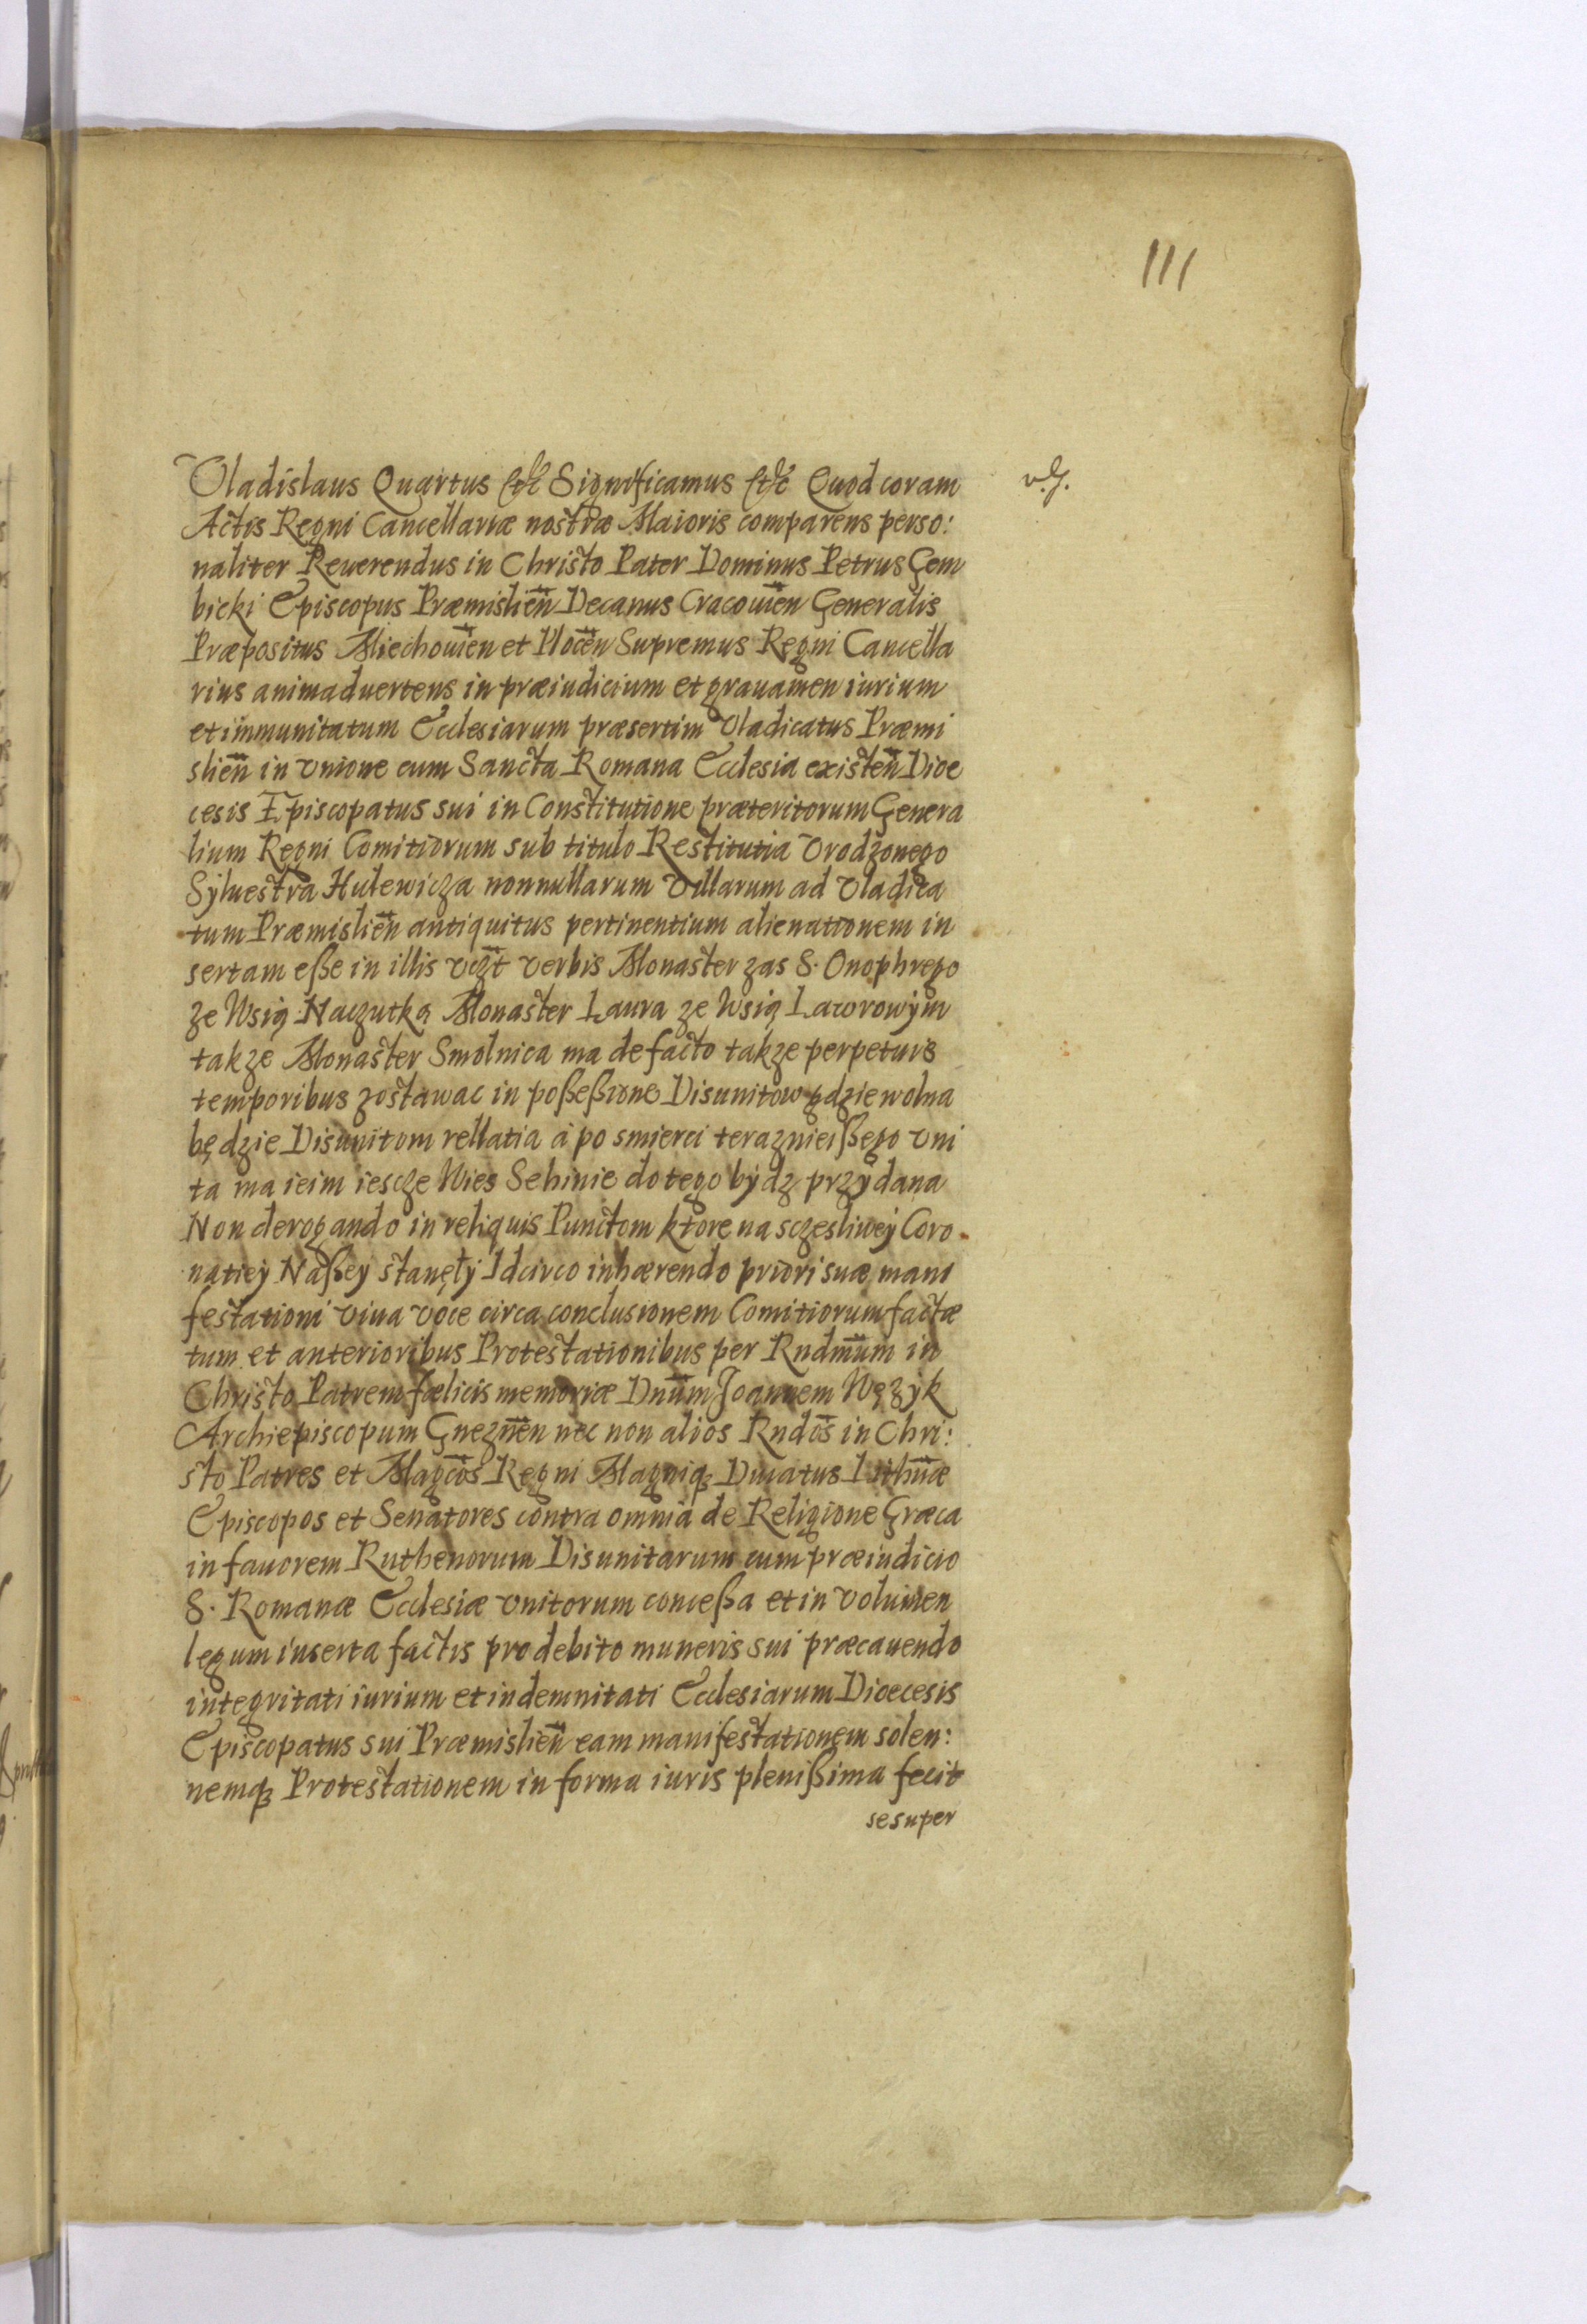 111
Vladislaus Quartus etc Significamus etc Quod coram
Actis Regni Cancellariæ nostræ Maioris comparens perso:
naliter Reuerendus in Christo Pater Dominus Petrus Gem
bicki Episcopus Præmislien̄ Decanus Cracouien̄ Generalis
Præpositus Miechouien̄ et Plocen̄ Supremus Regni Cancella
rius animaduertens in præiudicium et grauamen iurium
et immunitatum Ecclesiarum præsertim Vladicatus Præmi
slien̄ in Vnione cum Sancta Romana Ecclesia existen̄ Dioe
cesis Episcopatus sui in Constitutione præteritorum Genera
lium Regni Comitiorum sub titulo Restitutia Vrodzonego
Sylvestra Hulewicza nonnullarum Villarum ad Vladica
tum Præmislien̄ antiquitus pertinentium alienationem in
sertam eße in illis vczt̄ verbis Monaster zas S. Onophrego
ze Wsią Naczutką Monaster Laura ze Wsią Lawrowÿm
takze Monaster Smolnica ma de facto takze perpetuis
temporibus zostawac in poßeßione Disunitow gdzie wolna
będzie Disunitom rellatia á po smierci teraznieißego Vni
ta ma ieim iescze Wies Sehinie do tego bÿdz przÿdana
Non derogando in reliquis Punctom ktore na sczesliweÿ Coro
natieÿ Naßeÿ stanęłÿ Idcirco inhærendo priori suæ mani
festationi viua voce circa conclusionem Comitiorum factæ
tum et anterioribus Protestationibus per Rndmūm in
Christo Patrem fœlicis memoriæ Dnūm Joannem Wężÿk
Archiepiscopum Gneznēn nec non alios Rndōs in Chri:
sto Patres et Magcōs Regni Magniq3 Ducatus Lithuāæ
Episcopos et Senatores contra omnia de Religione Græca
in fauorem Ruthenorum Disunitarum cum præiudicio
S. Romanæ Ecclesiæ Vnitorum conceßa et in Volumen
legum inserta factis pro debito muneris sui præcauendo
integritati iurium et indemnitati Ecclesiarum Dioecesis
Episcopatus sui Præmislien̄ eam manifestationem solen:
nemq3 Protestationem in forma iuris plenißima fecit
se super